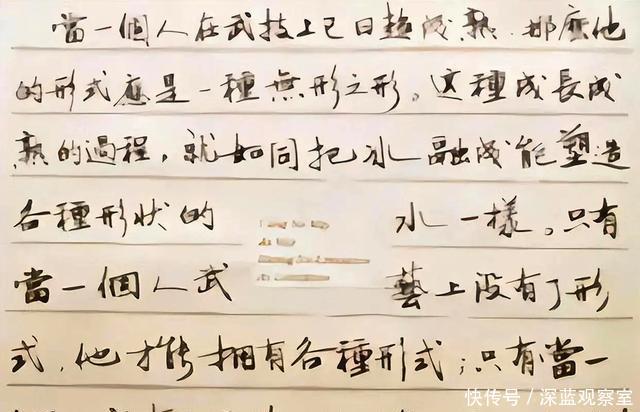 當一個人在武技上已日趨成熟，那麽他
的形式應是一種無形之形。這種成長成
熟的過程，就如同把冰融成能塑造
各種形狀的水一樣。只有
當一個人武藝上没有了形
式，他才能擁有各種形式；只有當一
快传号／深蓝观察室